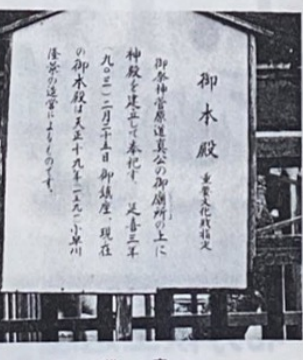 御本殿 重要文化財指定
御祭神菅原道真公の御廟所の上に
神殿を建立して奉祀す。延喜三年
(九〇三)二月二十五日御鎮座、現在
の御本殿は天正十九年(一五九一)小早川
隆景の造営によるものです。